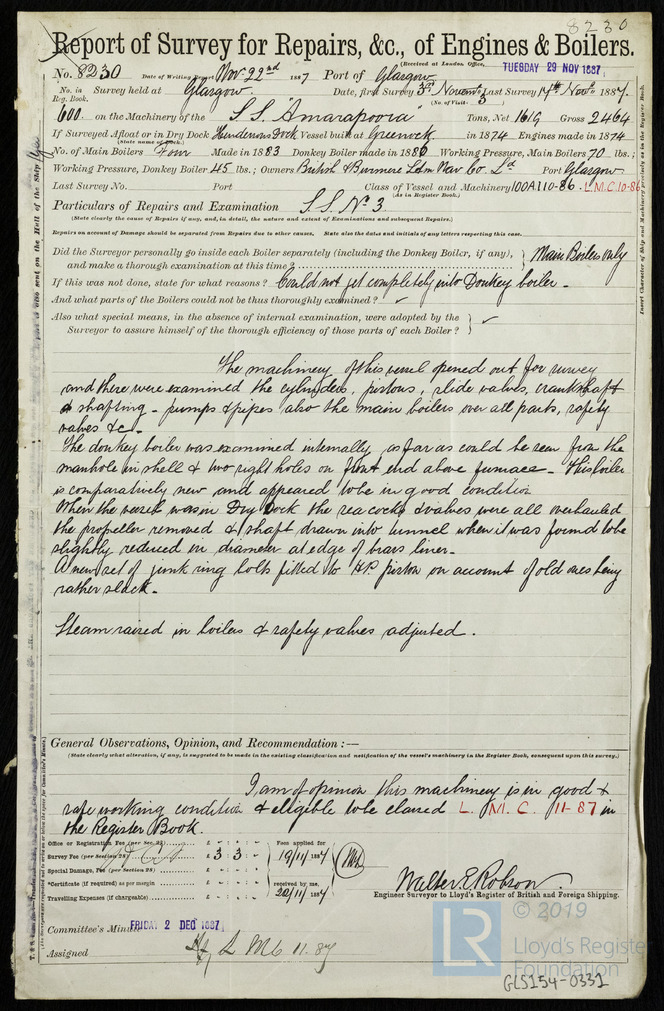 8230
Report of Survey for Repairs, &c., of Engines & Boilers.
(Received at London Office, TUESDAY 29 NOV 1887
No. 8230 Date of Writing Report Nov 22nd 1887 Port of Glasgow
No. in Reg. Book. Survey held at Glasgow. Date, first Survey 3rd Novem Last Survey 17th Novr 1887.
(No. of Visits 3)
600 on the Machinery of the S.S. "Amarapoora Tons, Net 1619 Gross 2464
If Surveyed Afloat or in Dry Dock Hendersons Dock Vessel built at Greenock in 1874 Engines made in 1874
(State name of Dock.)
No. of Main Boilers Four Made in 1883 Donkey Boiler made in 1886 Working Pressure, Main Boilers 70 lbs.;
Working Pressure, Donkey Boiler 45 lbs.; Owners British & Burmese Stm Nav Co. Ld Port Glasgow
Last Survey No. Port Class of Vessel and Machinery 100A1 10-86. L.M.C. 10-86
(As in Register Book.)
Particulars of Repairs and Examination S.S. No. 3
(State clearly the cause of Repairs if any, and, in detail, the nature and extent of Examinations and subsequent Repairs.)
Repairs on account of Damage should be separated from Repairs due to other causes. State also the dates and initials of any letters respecting this case.
Did the Surveyor personally go inside each Boiler separately (including the Donkey Boiler, if any), and make a thorough examination at this time? Main Boilers only
If this was not done, state for what reasons? Could not get completely into Donkey boiler.-
And what parts of the Boilers could not be thus thoroughly examined?
Also what special means, in the absence of internal examination, were adopted by the
Surveyor to assure himself of the thorough efficiency of those parts of each Boiler?
The machinery of this vessel opened out for survey
and there were examined the cylinders, pistons, slide valves, crankshaft
& shafting - pumps & pipes also the main boilers over all parts, safety
valves &c.-
The donkey boiler was examined internally as far as could be seen from the
manhole in shell & two sight holes on front end above furnace - This boiler
is comparatively new and appeared to be in good condition
When the vessel was in Dry Dock the sea cocks & valves were all overhauled
the propeller removed & shaft drawn into tunnel when it was found to be
slightly reduced in diameter at edge of brass liner.-
A new set of junk ring bolts fitted to H.P. piston on account of old ones being
rather slack.-
Steam raised in boilers & safety valves adjusted.
General Observations, Opinion, and Recommendation:-
(State clearly what alteration, if any, is suggested to be made in the existing classification and notification of the vessel's machinery in the Register Book, consequent upon this survey.)
I am of opinion this machinery is in good &
safe working condition & eligible to be classed L.M.C. 11-87 in
the Register Book.
Office or Registration Fee (per Sec. 28) £ : : Fees applied for
Survey Fee (per Section 28) £ 3 : 3 : - 19/11/1887
Special Damage, Fee (per Section 28) £ : :
*Certificate (if required) as per margin £ : : received by me,
Travelling Expenses (if chargeable) £ : : 22/11/1887
Walter E Robson
Engineer Surveyor to Lloyd's Register of British and Foreign Shipping.
Committee's Minute FRIDAY 2 DEC 1887
Assigned L M C 11.87
LR © 2019
Lloyd's Register
Foundation
GLS154-0331
Insert Character of Ship and Machinery precisely as in the Register Book.